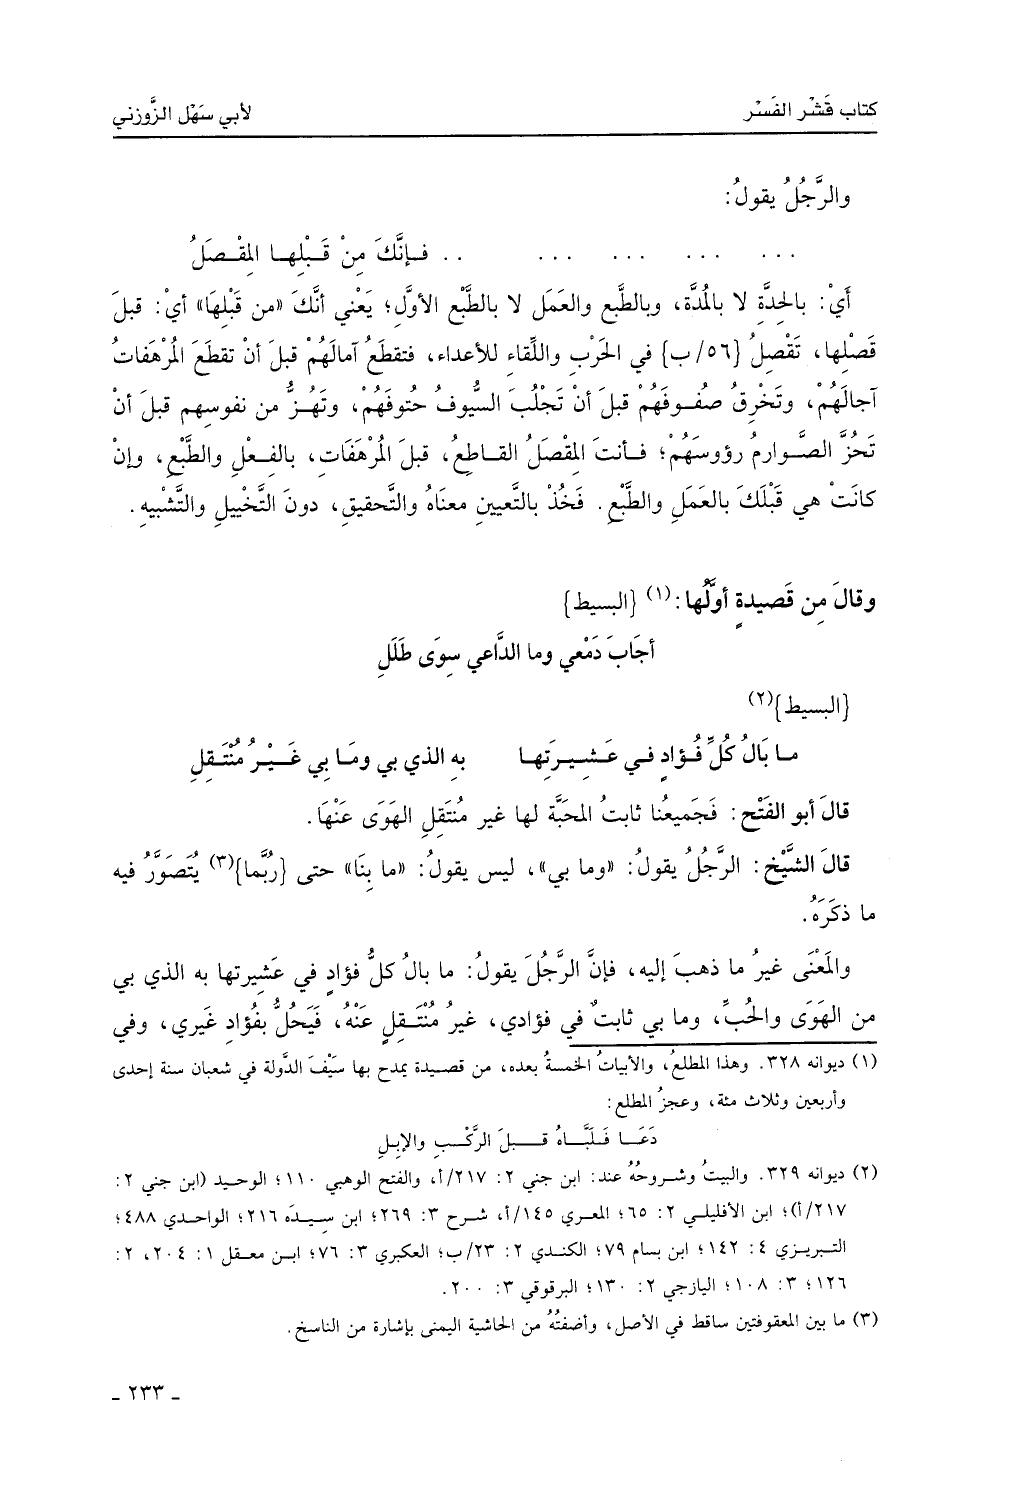 كتاب قَشْر الفَسْر
لأبي سَهْل الزَّوزني
والرَّجُلُ يقولُ:
... ... ... ... .. فـإنَّكَ مِنْ قَـبْلِهـا المِقْـصَلُ
أَيْ: بالحِدَّةِ لا بالمُدَّة، وبالطَّبع والعَمَل لا بالطَّبْع الأوَّل؛ يَعْني أنَّكَ «من قَبْلِهَا» أيْ: قبلَ
قَصْلِها، تَقْصِلُ {٥٦/ب} في الحَرْبِ واللِّقاء للأعداء، فتقطَعُ آمالَهُمْ قبلَ أنْ تقطَعَ المُرْهَفاتُ
آجالَهُمْ، وتَخْرِقُ صفُـوفَهُمْ قبلَ أنْ تَجْلُبَ السُّيوفُ حتُوفَهُمْ، وتَهُـزُّ من نفوسِهم قبلَ أنْ
تَحُزَّ الصَّـوارمُ رؤوسَهُمْ؛ فـأنتَ المِقْصَلُ القـاطِعُ، قبلَ المُرْهَفَاتِ، بالفِـعْلِ والطَّبْعِ، وإنْ
كانَتْ هي قَبْلَكَ بالعَمَلِ والطَّبْعِ. فَخُذْ بالتَّعيينِ معنَاهُ والتَّحقيقِ، دونَ التَّخْييلِ والتَّشْبيهِ.
وقالَ مِن قَصيدةٍ أوَّلُها:(١) {البسيط}
أجَابَ دَمْعي وما الدَّاعي سِوَى طَلَلِ
{البسيط}(٢)
مـا بَالُ كُلِّ فُـؤادٍ فـي عَـشِيـرَتِهـا به الذي بي ومَـا بِي غَـيْـرُ مُنْتَـقِلِ
قالَ أبو الفَتْح: فَجَميعُنا ثابتُ المحَبَّة لها غير مُنتَقِلِ الهَوَى عَنْهَا.
قالَ الشَّيْخ: الرَّجُلُ يقولُ: «وما بي»، ليس يقولُ: «ما بِنَا» حتى {رُبَّما}(٣) يُتَصَوَّرُ فيه
ما ذكَرَهُ.
والمَعْنَى غيرُ ما ذهبَ إليه، فإنَّ الرَّجُلَ يقولُ: ما بالُ كلِّ فؤادٍ في عَشِيرتها به الذي بي
من الهَوَى والحُبِّ، وما بي ثابتٌ في فؤادي، غيرُ مُنْتَـقِلٍ عَنْهُ، فَيَحُلُّ بفُؤادِ غَيري، وفي
(١) ديوانه ٣٢٨. وهذا المطلعُ، والأبياتُ الخمسةُ بعده، من قصـيدة يمدح بها سيَْفَ الدَّولة في شعبان سنة إحدى
وأربعين وثلاث مئة، وعجزُ المطلع:
دَعَـا فَـلَبَّـاهُ قـبـلَ الرَّكْـبِ والإبِـلِ
(٢) ديوانه ٣٢٩. والبيتُ وشـروحُهُ عند: ابن جني ٢: ٢١٧/أ، والفتح الوهبي ١١٠؛ الوحيد (ابن جني ٢:
٢١٧/أ)؛ ابن الأفليلـي ٢: ٦٥؛ المعري ١٤٥/أ، شـرح ٣: ٢٦٩؛ ابن سِيـدَه ٢١٦؛ الواحـدي ٤٨٨؛
التبـريـزي ٤: ١٤٢؛ ابن بسام ٧٩؛ الكنـدي ٢: ٢٣/ب؛ العكبري ٣: ٧٦؛ ابـن معـقل ١: ٢٠٤، ٢:
١٢٦؛ ٣: ١٠٨؛ اليازجي ٢: ١٣٠؛ البرقوقي ٣: ٢٠٠.
(٣) ما بين المعقوفتين ساقط في الأصل، وأضفتُهُ من الحاشية اليمنى بإشارة من الناسخ.
ـ ٢٣٣ ـ